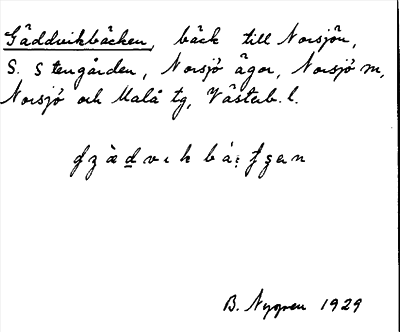 Gäddvikbäcken, bäck till Norsjön,
S. Stengården, Norsjö ägor, Norsjö sn,
Norsjö och Malå tg, Västerb. l.
B. Nygren 1929